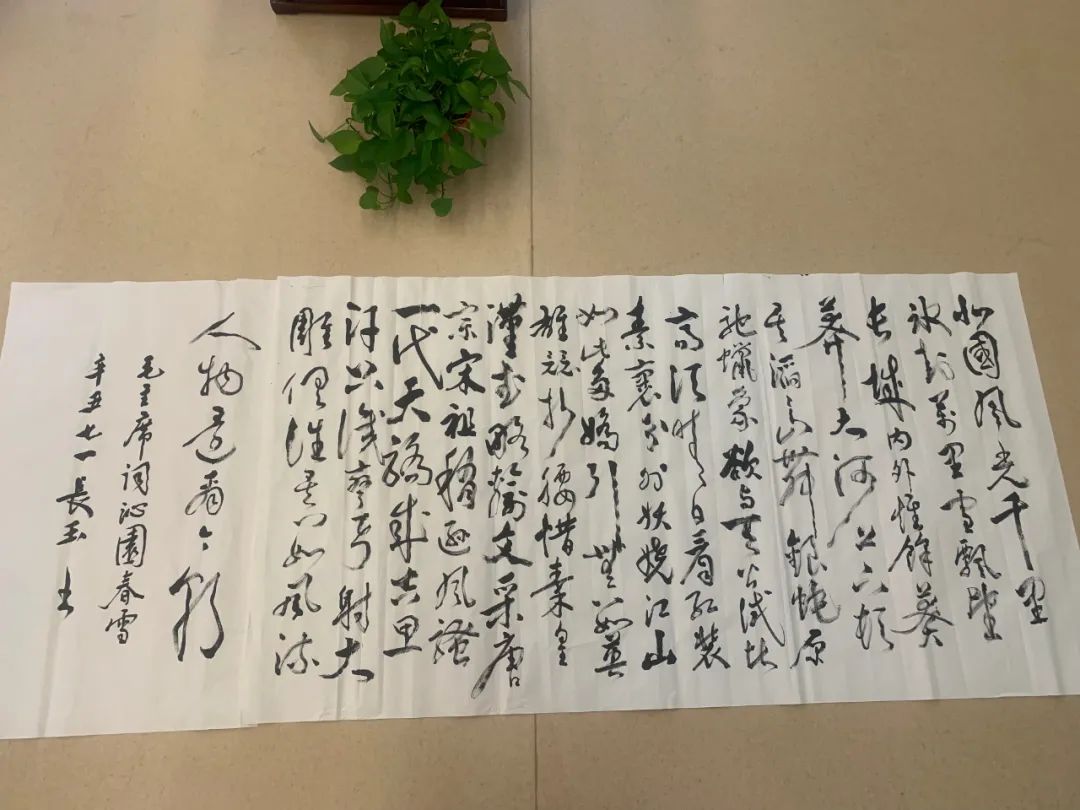 北國風光千里
冰封萬里雪飘望
长城内外惟餘莽
莽大河上下頓
失滔滔山舞銀蛇原
驰蠟象欲与天公試比
高须晴日看红装
素裹分外妖娆江山
如此多嬌引無數英
雄競折腰惜秦皇
漢武略输文采唐
宗宋祖稍逊風騷
一代天驕成吉思
汗只識彎弓射大
雕俱往矣数風流
人物還看今朝
毛主席词沁園春雪
辛丑七一長玉书